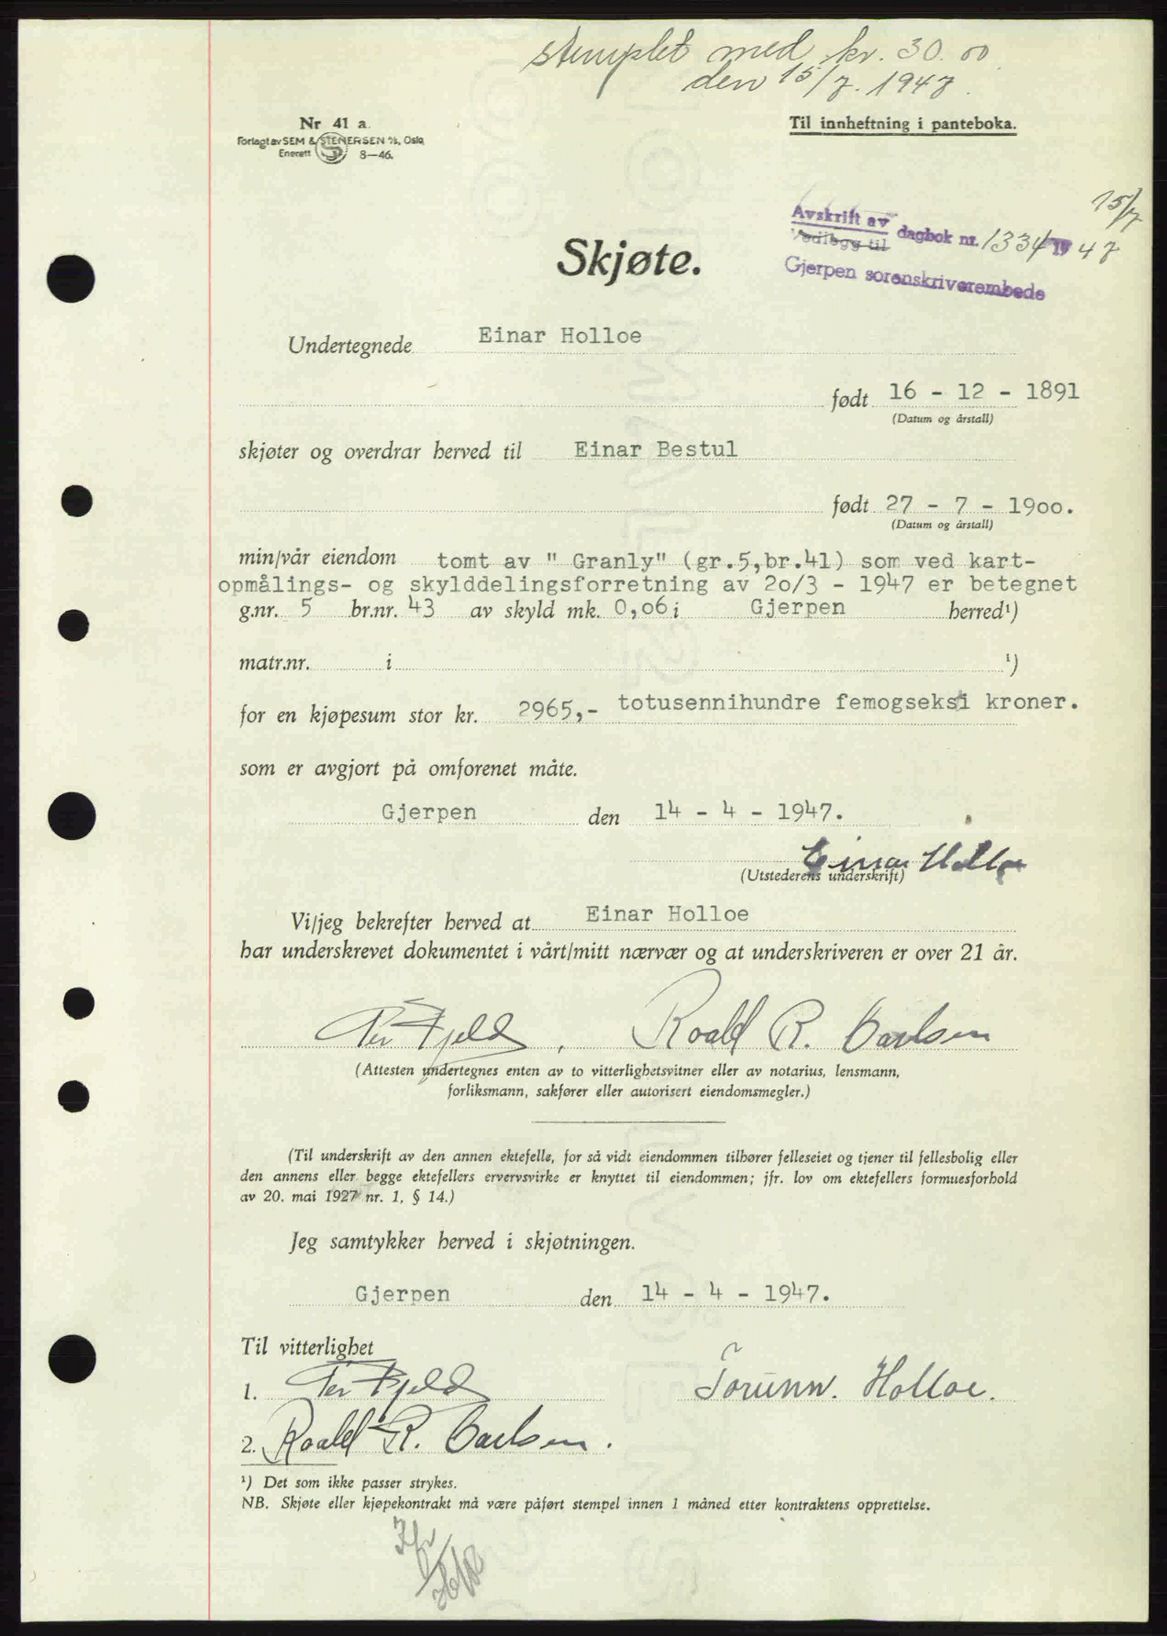 stemplet med kr. 30.00
den 15/7. 1947.
Nr 41 a.
Forlagt av SEM & STENERSEN A/S, Oslo
Enerett 8—46.
Til innheftning i panteboka.
15/7
Avskrift av
Vedlegg til dagbok nr. 1334 1947
Gjerpen sorenskriverembede
Skjøte.
Undertegnede Einar Holloe
født 16 - 12 - 1891
(Datum og årstall)
skjøter og overdrar herved til Einar Bestul
født 27 - 7 - 19oo.
(Datum og årstall)
min/vår eiendom tomt av " Granly" (gr.5,br.41) som ved kart-
opmålings- og skylddelingsforretning av 2o/3 - 1947 er betegnet
g.nr. 5 br.nr. 43 av skyld mk. 0,06 i Gjerpen herred¹)
matr.nr. i ¹)
for en kjøpesum stor kr. 2965,- totusennihundre femogseksi kroner.
som er avgjort på omforenet måte.
Gjerpen den 14 - 4 - 1947.
Einar Holloe
(Utstederens underskrift)
Vi/jeg bekrefter herved at Einar Holloe
har underskrevet dokumentet i vårt/mitt nærvær og at underskriveren er over 21 år.
Per Fjeld, Roald R. Carlsen
(Attesten undertegnes enten av to vitterlighetsvitner eller av notarius, lensmann,
forliksmann, sakfører eller autorisert eiendomsmegler.)
(Til underskrift av den annen ektefelle, for så vidt eiendommen tilhører felleseiet og tjener til fellesbolig eller
den annens eller begge ektefellers ervervsvirke er knyttet til eiendommen; jfr. lov om ektefellers formuesforhold
av 20. mai 1927 nr. 1, § 14.)
Jeg samtykker herved i skjøtningen.
Gjerpen den 14 - 4 - 1947.
Til vitterlighet
1. Per Fjeld Torunn. Holloe.
2. Roald R. Carlsen.
¹) Det som ikke passer strykes.
NB. Skjøte eller kjøpekontrakt må være påført stempel innen 1 måned etter kontraktens opprettelse.